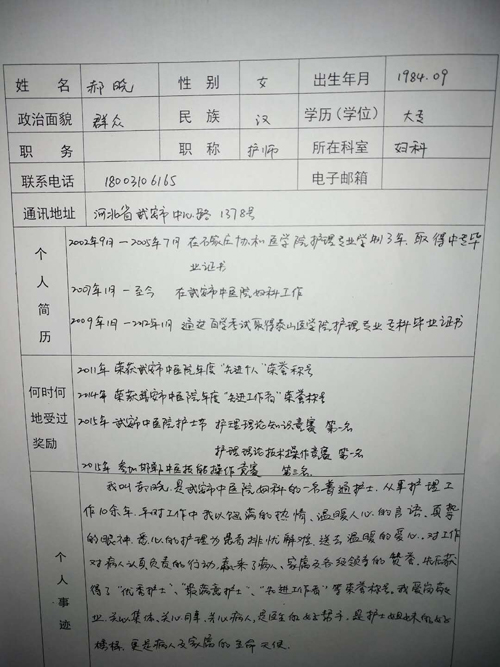 姓 名 郝晓 性 别 女 出生年月 1984.09
政治面貌 群众 民 族 汉 学历(学位) 大专
职 务 职 称 护师 所在科室 妇科
联系电话 18003106165 电子邮箱
通讯地址 河北省武安市中心路1378号
个人简历
2002年9月—2005年7月 在石家庄协和医学院护理专业学制3年,取得中专毕
业证书
2007年1月—至今 在武安市中医院妇科工作
2009年1月—2012年1月 通过自学考试取得泰山医学院护理专业专科毕业证书
何时何地受过奖励
2011年 荣获武安市中医院年度“先进个人”荣誉称号
2014年 荣获武安市中医院年度“先进工作者”荣誉称号
2015年 武安市中医院护士节 护理理论知识竞赛 第一名
护理理论技术操作竞赛 第一名
2015年 参加邯郸中医技能操作竞赛 第三名
个人事迹
我叫郝晓,是武安市中医院妇科的一名普通护士,从事护理工
作10余年,平时工作中我以饱满的热情、温暖人心的言语、真挚
的眼神、悉心的护理为患者排忧解难,送去温暖的爱心,对工作
对病人认真负责的行动,赢来了病人、家属及各级领导的赞誉,先后获
得了“优秀护士”、“最满意护士”、“先进工作者”等荣誉称号,我爱岗敬
业、关心集体、关心同事、关心病人,是医生的好帮手,是护士姐妹的好
榜样,更是病人及家属的生命天使。